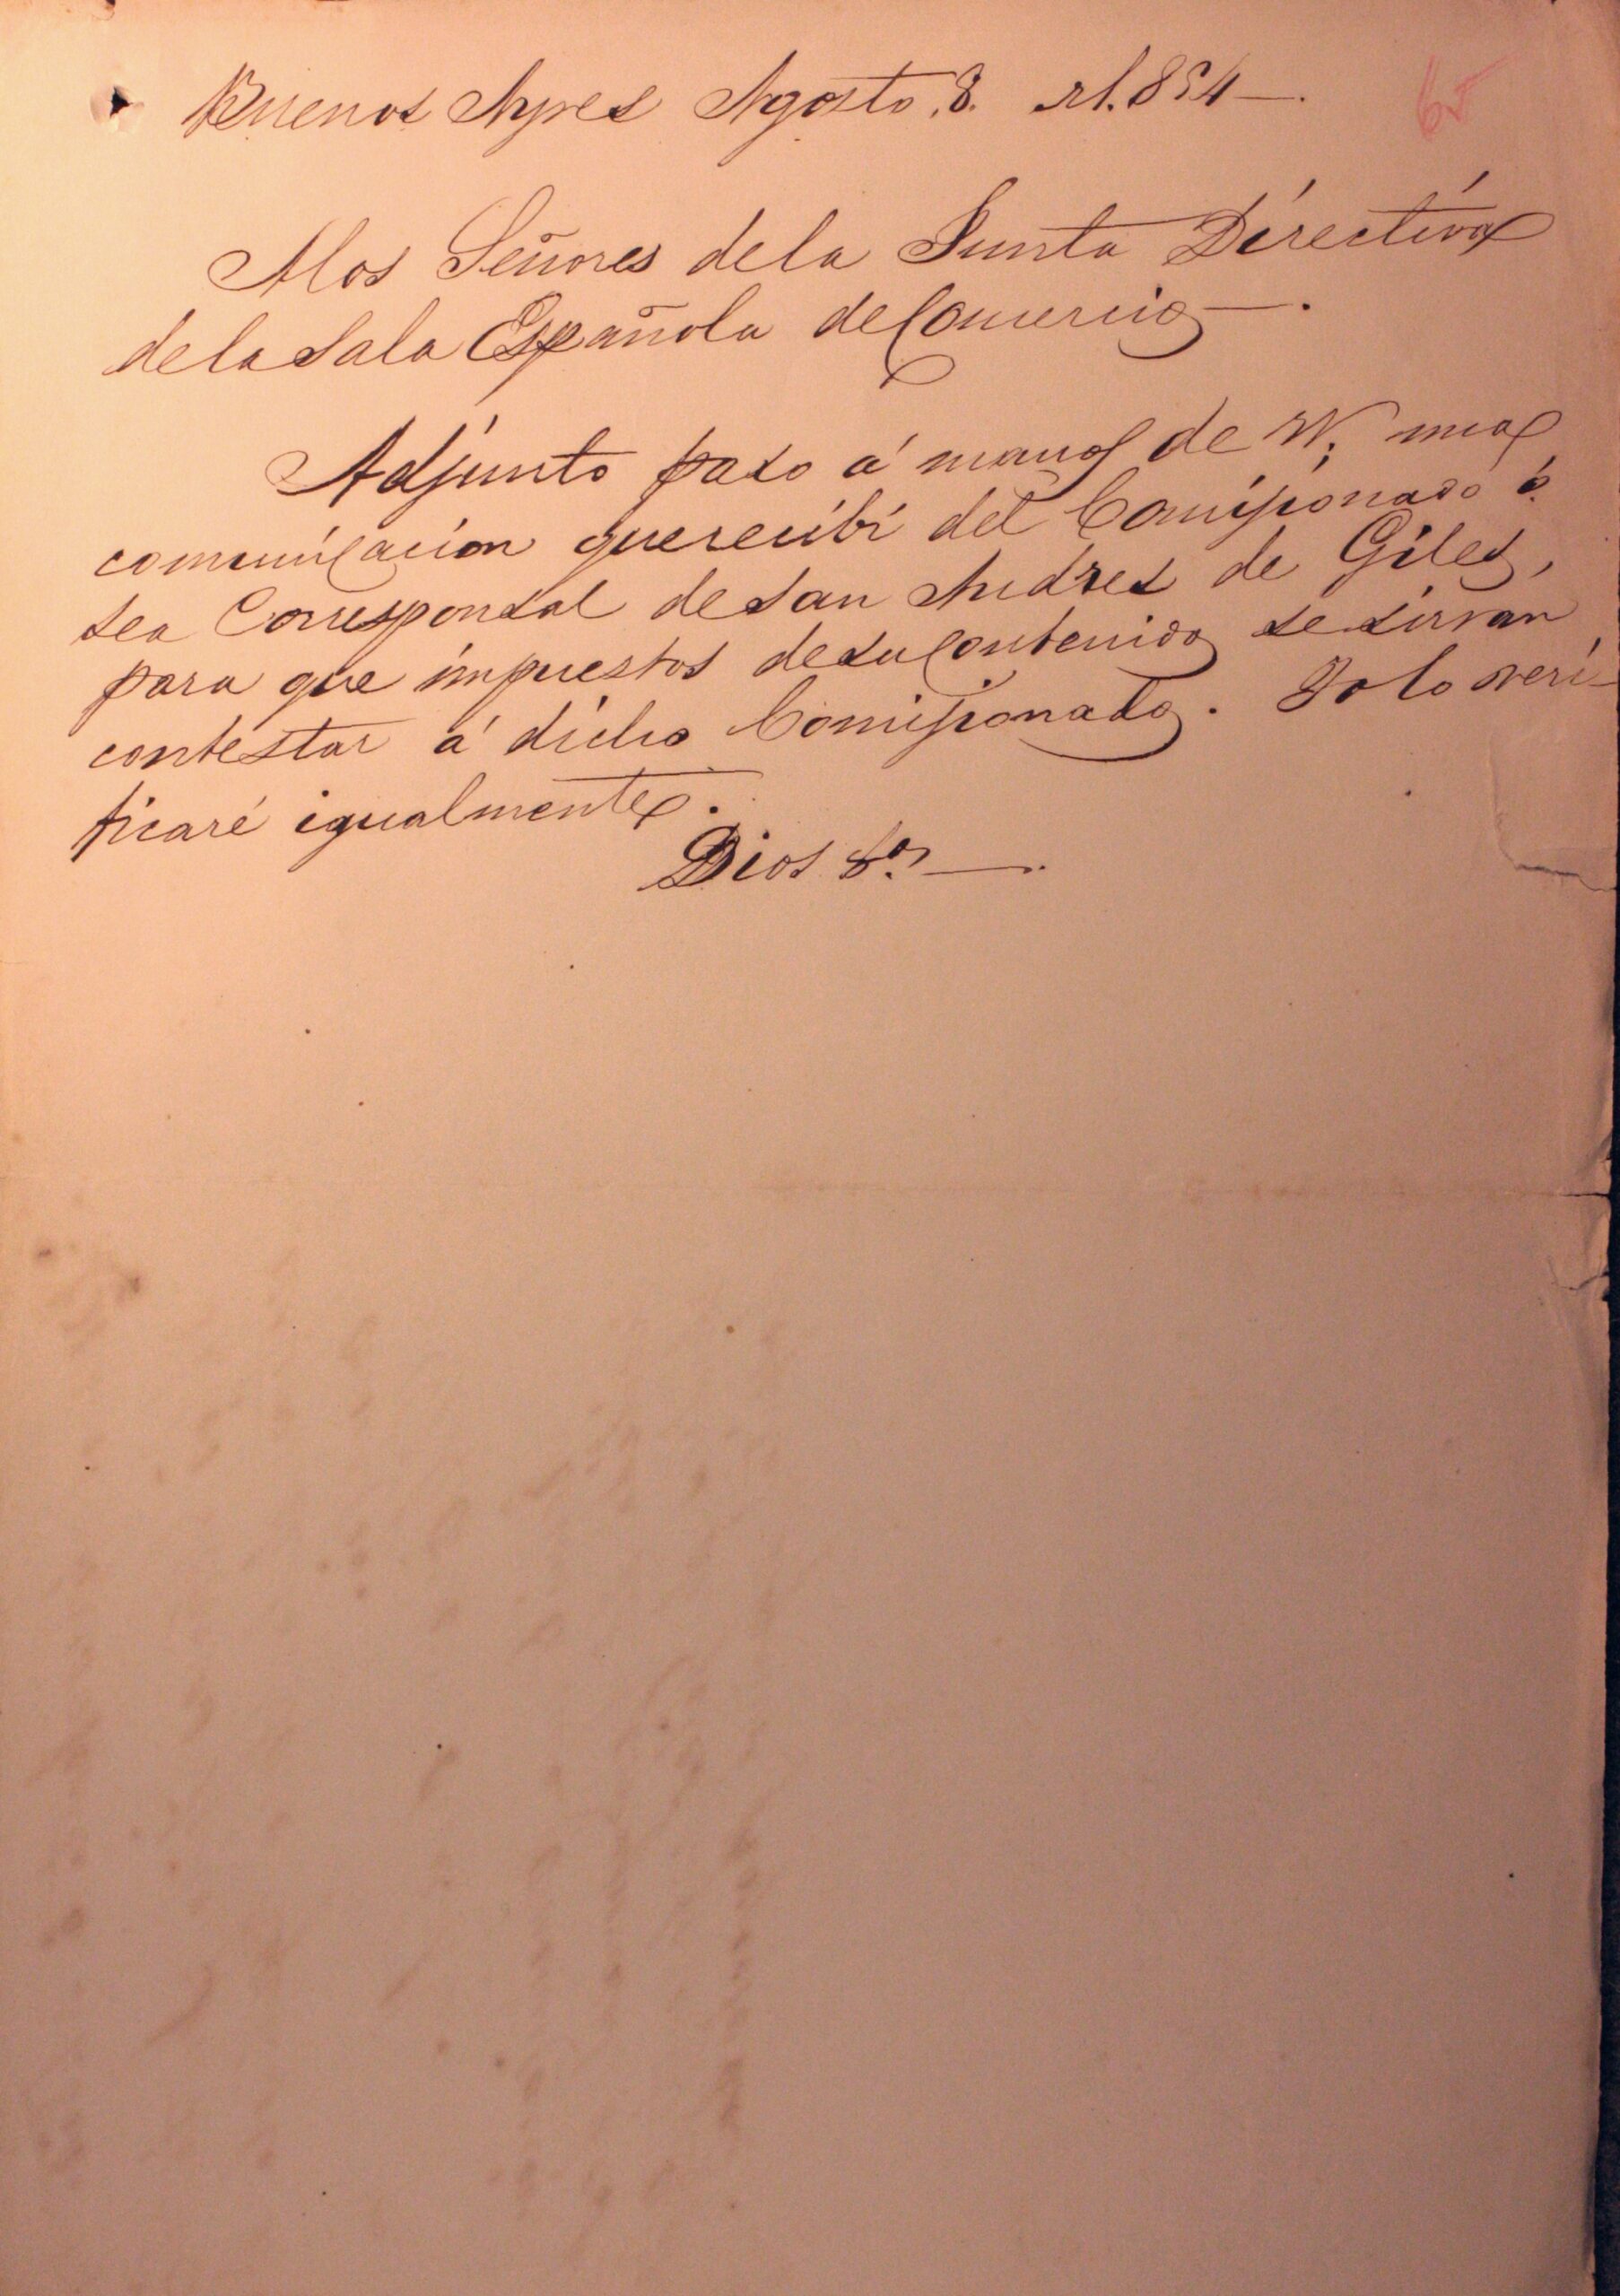 Buenos Ayres Agosto, 8. de 1.854—.
65
Alos Señores dela Junta Directiva
dela Sala Española deComercio—.
Adjunto paso á manos de VV. una
comunicacion querecibí del Comisionado ó
sea Corresponsal desan Andres de Giles,
para que impuestos desucontenido se sirvan
contestar á dicho Comisionado. Yo lo veri-
ficaré igualmente.
Dios &a—.